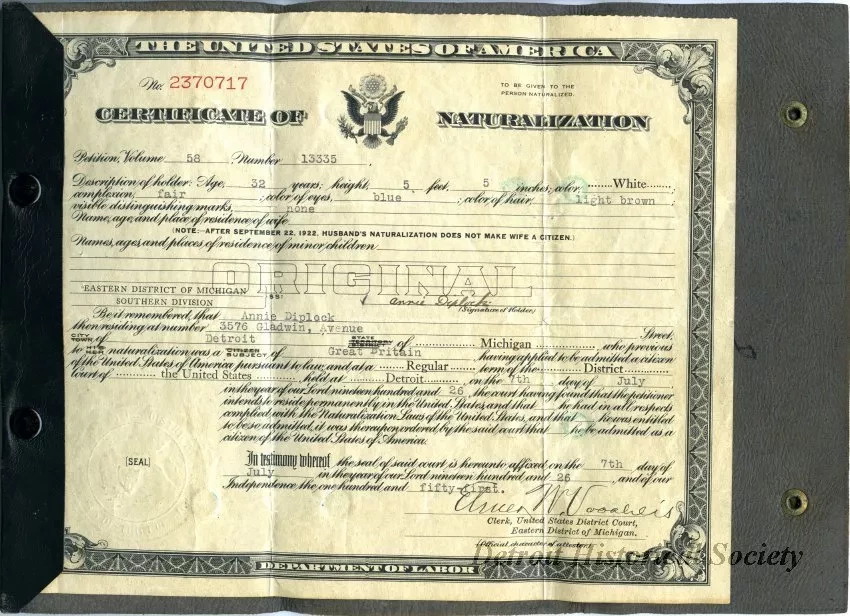 THE UNITED STATES OF AMERICA
No. 2370717
TO BE GIVEN TO THE
PERSON NATURALIZED.
CERTIFICATE OF NATURALIZATION
Petition, Volume 58 Number 13335
Description of holder: Age, 32 years; height, 5 feet, 5 inches; color, White;
complexion, fair; color of eyes, blue; color of hair, light brown;
visible distinguishing marks, none
Name, age, and place of residence of wife
(NOTE: AFTER SEPTEMBER 22, 1922, HUSBAND'S NATURALIZATION DOES NOT MAKE WIFE A CITIZEN.)
Names, ages, and places of residence of minor children
ORIGINAL
EASTERN DISTRICT OF MICHIGAN
SOUTHERN DIVISION
ss:
Annie Diplock
(Signature of Holder)
Be it remembered, that Annie Diplock
then residing at number 3576 Gladwin, Avenue Street,
CITY
TOWN of Detroit STATE of Michigan, who previous
to naturalization was a CITIZEN SUBJECT of Great Britain having applied to be admitted a citizen
of the United States of America pursuant to law, and at a Regular term of the District
Court of the United States held at Detroit on the 7th day of July
in the year of our Lord nineteen hundred and 26, the court having found that the petitioner
intends to reside permanently in the United States, and that he had in all respects
complied with the Naturalization Laws of the United States, and that he was entitled
to be so admitted, it was thereupon ordered by the said court that he be admitted as a
citizen of the United States of America.
[SEAL]
In testimony whereof the seal of said court is hereunto affixed on the 7th day of
July in the year of our Lord nineteen hundred and 26, and of our
Independence the one hundred and fifty-first.
Elmer W. Voorheis
Clerk, United States District Court,
Eastern District of Michigan.
(Official character of attestor)
DEPARTMENT OF LABOR
Detroit Historical Society